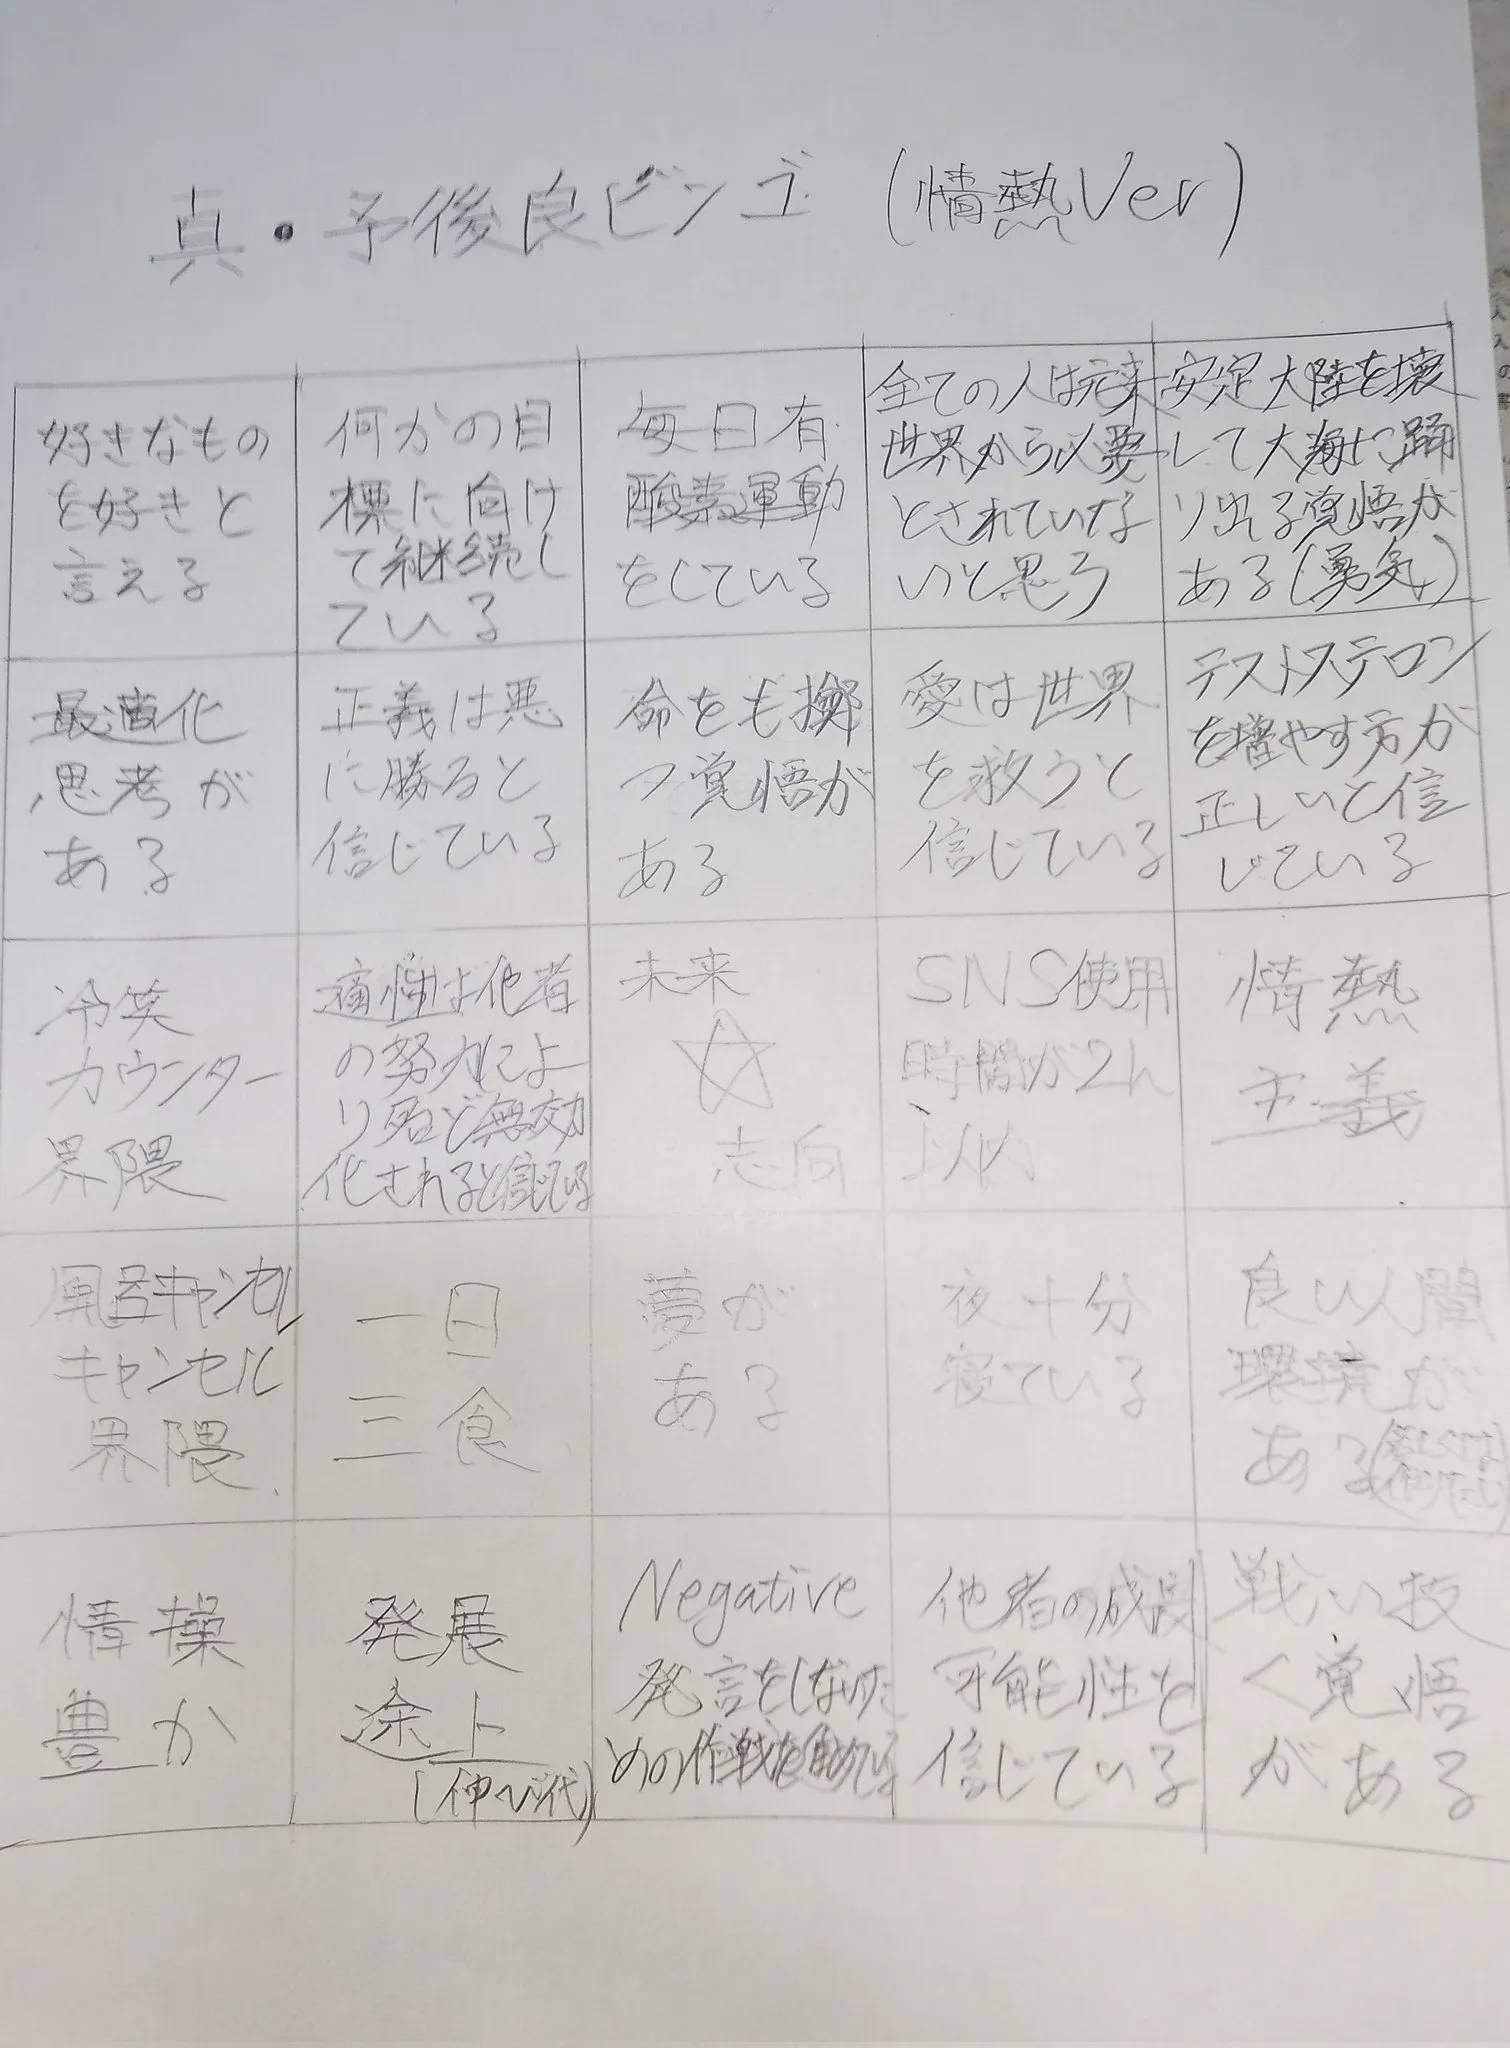 真・予後良ビンゴ (情熱Ver)
好きなもの
を好きと
言える
何かの目
標に向け
て継続し
ている
毎日有
酸素運動
をしている
全ての人は元来
世界から必要
とされていな
いと思う
安定大陸を壊
して大海に踊
り出る覚悟が
ある(勇気)
最適化
思考が
ある
正義は悪
に勝ると
信じている
命をも擲
つ覚悟が
ある
愛は世界
を救うと
信じている
テストステロン
を増やす方が
正しいと信
じている
冷笑
カウンター
界隈
適性は他者
の努力によ
り殆ど無効
化されると信じている
未来
☆
志向
SNS使用
時間が2h
以内
情熱
主義
風呂キャンセル
キャンセル
界隈
一日
三食
夢が
ある
夜十分
寝ている
良い人間
環境が
ある
情操
豊か
発展
途上
(伸び代)
Negative
発言をしないた
めの作戦を
他者の成長
可能性を
信じている
戦い抜
く覚悟
がある